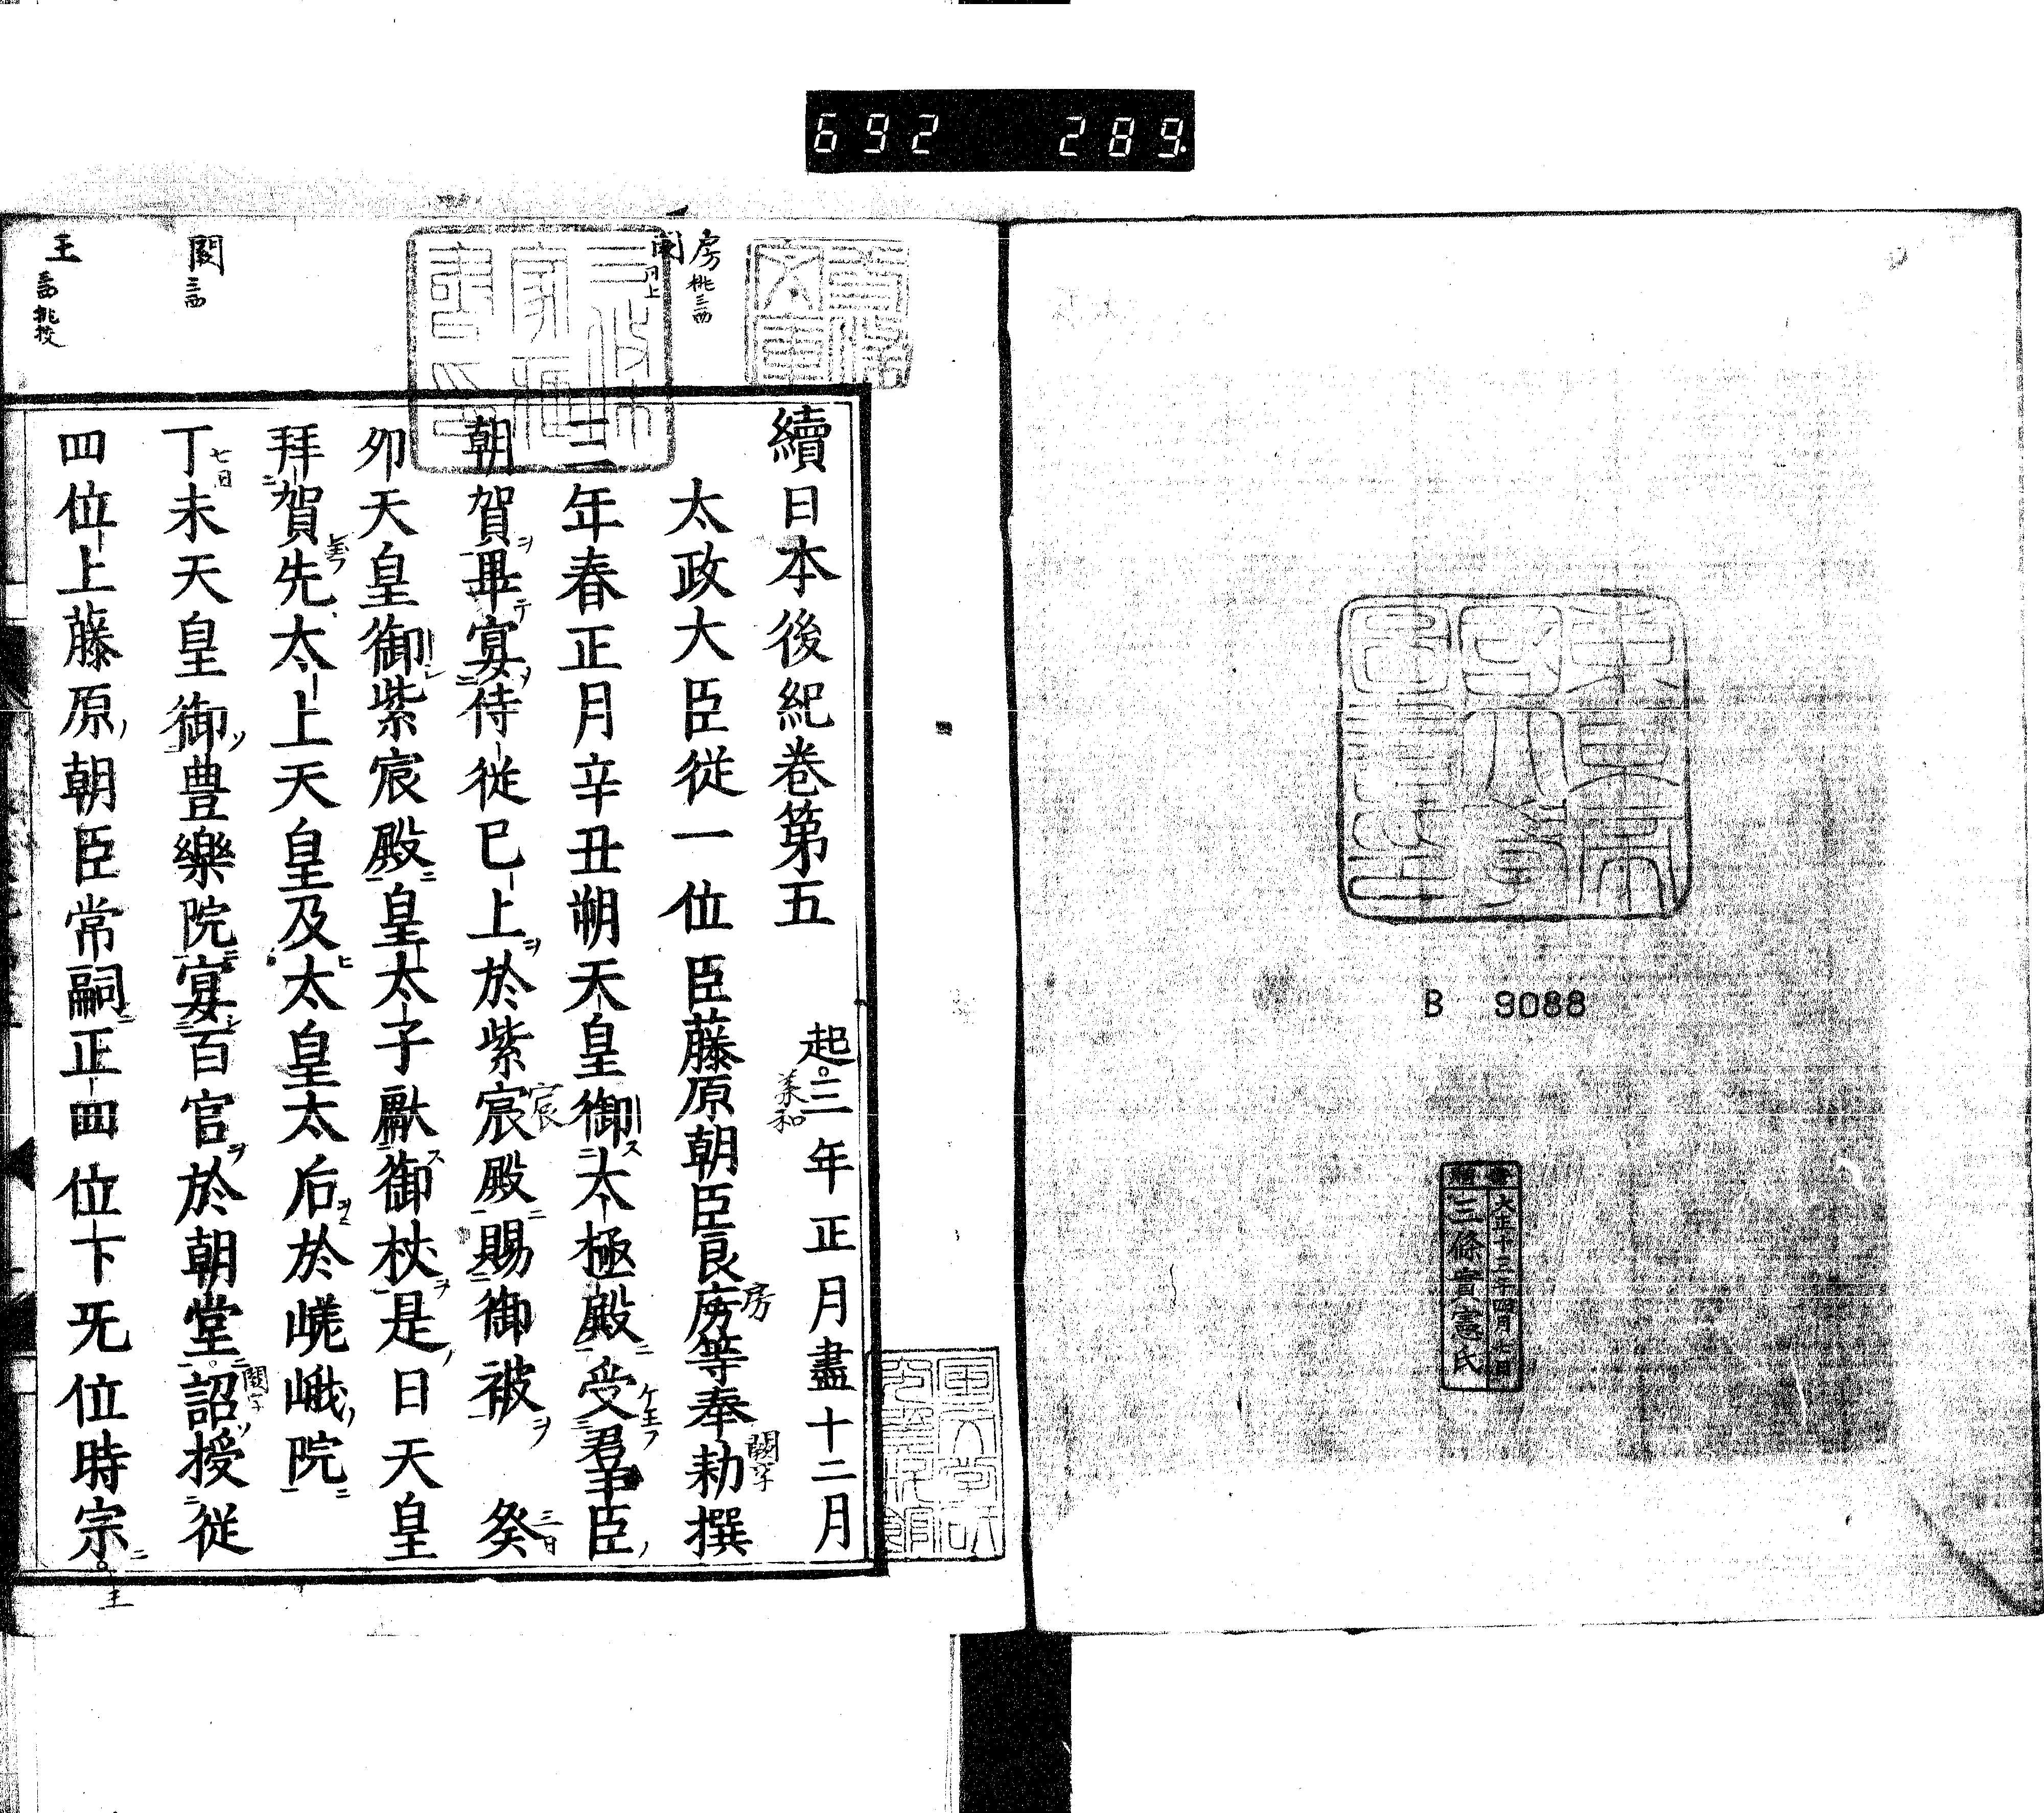 692 289
B 9088
大正十三年四月
三條實憲氏
續日本後紀巻第五 起三年正月盡十二月
兼和
太政大臣從一位臣藤原朝臣良房等奉勅撰
房
闕字
三年春正月辛丑朔天皇御大極殿受羣臣
朝賀畢宴侍從已上於紫宸殿賜御被 癸
宸
三日
夘天皇御紫宸殿皇太子獻御杖是日天皇
拜賀先太上天皇及太皇太后於嵯峨院
丁未天皇御豊樂院宴百官於朝堂詔授從
七日
闕字
四位上藤原朝臣常嗣正四位下旡位時宗
王
房 桃三西
闕 同上
闕 三西
王